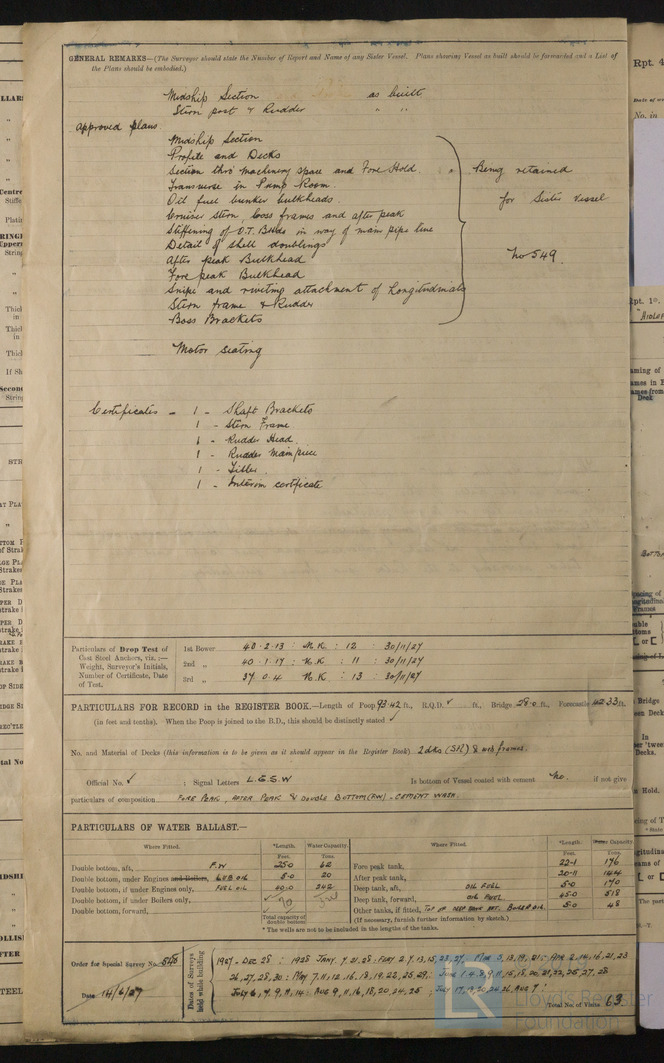 GENERAL REMARKS—(The Surveyor should state the Number of Report and Name of any Sister Vessel. Plans showing Vessel as built should be forwarded and a List of
the Plans should be embodied.)
Midship Section as built
Stern post & Rudder " "
Approved plans.
Midship Section
Profile and Decks
Section thro' machinery space and Fore Hold.
Transverse in Pump Room.
Oil fuel bunker bulkheads.
Cruiser stern, boss frames and after peak
Stiffening of O.T. Bhds in way of main pipe line
Detail of shell doublings
After peak Bulkhead
Fore peak Bulkhead
Snipe and riveting attachment of longitudinals
Stern frame & Rudder
Boss Brackets
Being retained
for Sister Vessel
No 549.
Motor seating
Certificates - 1 - Shaft Brackets
1 - Stern Frame
1 - Rudder Head.
1 - Rudder Main piece
1 - Tiller.
1 - Interim certificate
Particulars of Drop Test of
Cast Steel Anchors, viz.:—
Weight, Surveyor's Initials,
Number of Certificate, Date
of Test.
1st Bower 40·2·13 : N.K : 12 30/11/27
2nd " 40·1·17 : N.K : 11 : 30/11/27
3rd " 37·0·4 : N.K : 13 : 30/11/27
PARTICULARS FOR RECORD in the REGISTER BOOK.—Length of Poop 93·42 ft., R.Q.D. ✓ ft., Bridge 28·0 ft., Forecastle 42·33 ft.
(in feet and tenths). When the Poop is joined to the B.D., this should be distinctly stated ✓
No. and Material of Decks (this information is to be given as it should appear in the Register Book) 2 dks (Stl) & web frames.
Official No. ✓ ; Signal Letters L.G.S.W Is bottom of Vessel coated with cement No. if not give
particulars of composition FORE PEAK, AFTER PEAK & DOUBLE BOTTOM (FW) - CEMENT WASH.
PARTICULARS OF WATER BALLAST.—
Where Fitted. *Length. Water Capacity.
Feet. Tons.
Double bottom, aft, F.W 25·0 62
Double bottom, under Engines and Boilers, LUB OIL 5·0 20
Double bottom, if under Engines only, FUEL OIL 40·0 242
Double bottom, if under Boilers only, 70
Double bottom, forward,
Total capacity of
double bottom
Where Fitted. *Length. Water Capacity.
Feet. Tons.
Fore peak tank, 22·1 176
After peak tank, 20·11 144
Deep tank, aft, OIL FUEL 5·0 170
Deep tank, forward, OIL FUEL 45·0 518
Other tanks, if fitted, 5·0 48
(If necessary, furnish further information by sketch.)
* The wells are not to be included in the lengths of the tanks.
Order for Special Survey No. 548
Date 14/6/27
Dates of Surveys
held while building
1927 - DEC 28 : 1928 JANY. 7. 21. 28 : FEBY 2. 7, 13, 15, 23, 27, MAR 5, 13, 19, 21 : APR 2, 14, 16, 21, 23
26, 27, 28, 30 : MAY 7, 11, 12, 16, 18, 19, 22, 25, 29 : JUNE 1. 4. 8, 9, 11, 15, 18, 20, 21, 22, 25, 27, 28
JULY 6, 7, 9, 11, 14 : AUG 9, 11, 16, 18, 20, 24, 25 : JULY 17, 19, 20, 24, 26, AUG 7 :
Total No. of Visits 63.
Lloyd's Register
Foundation